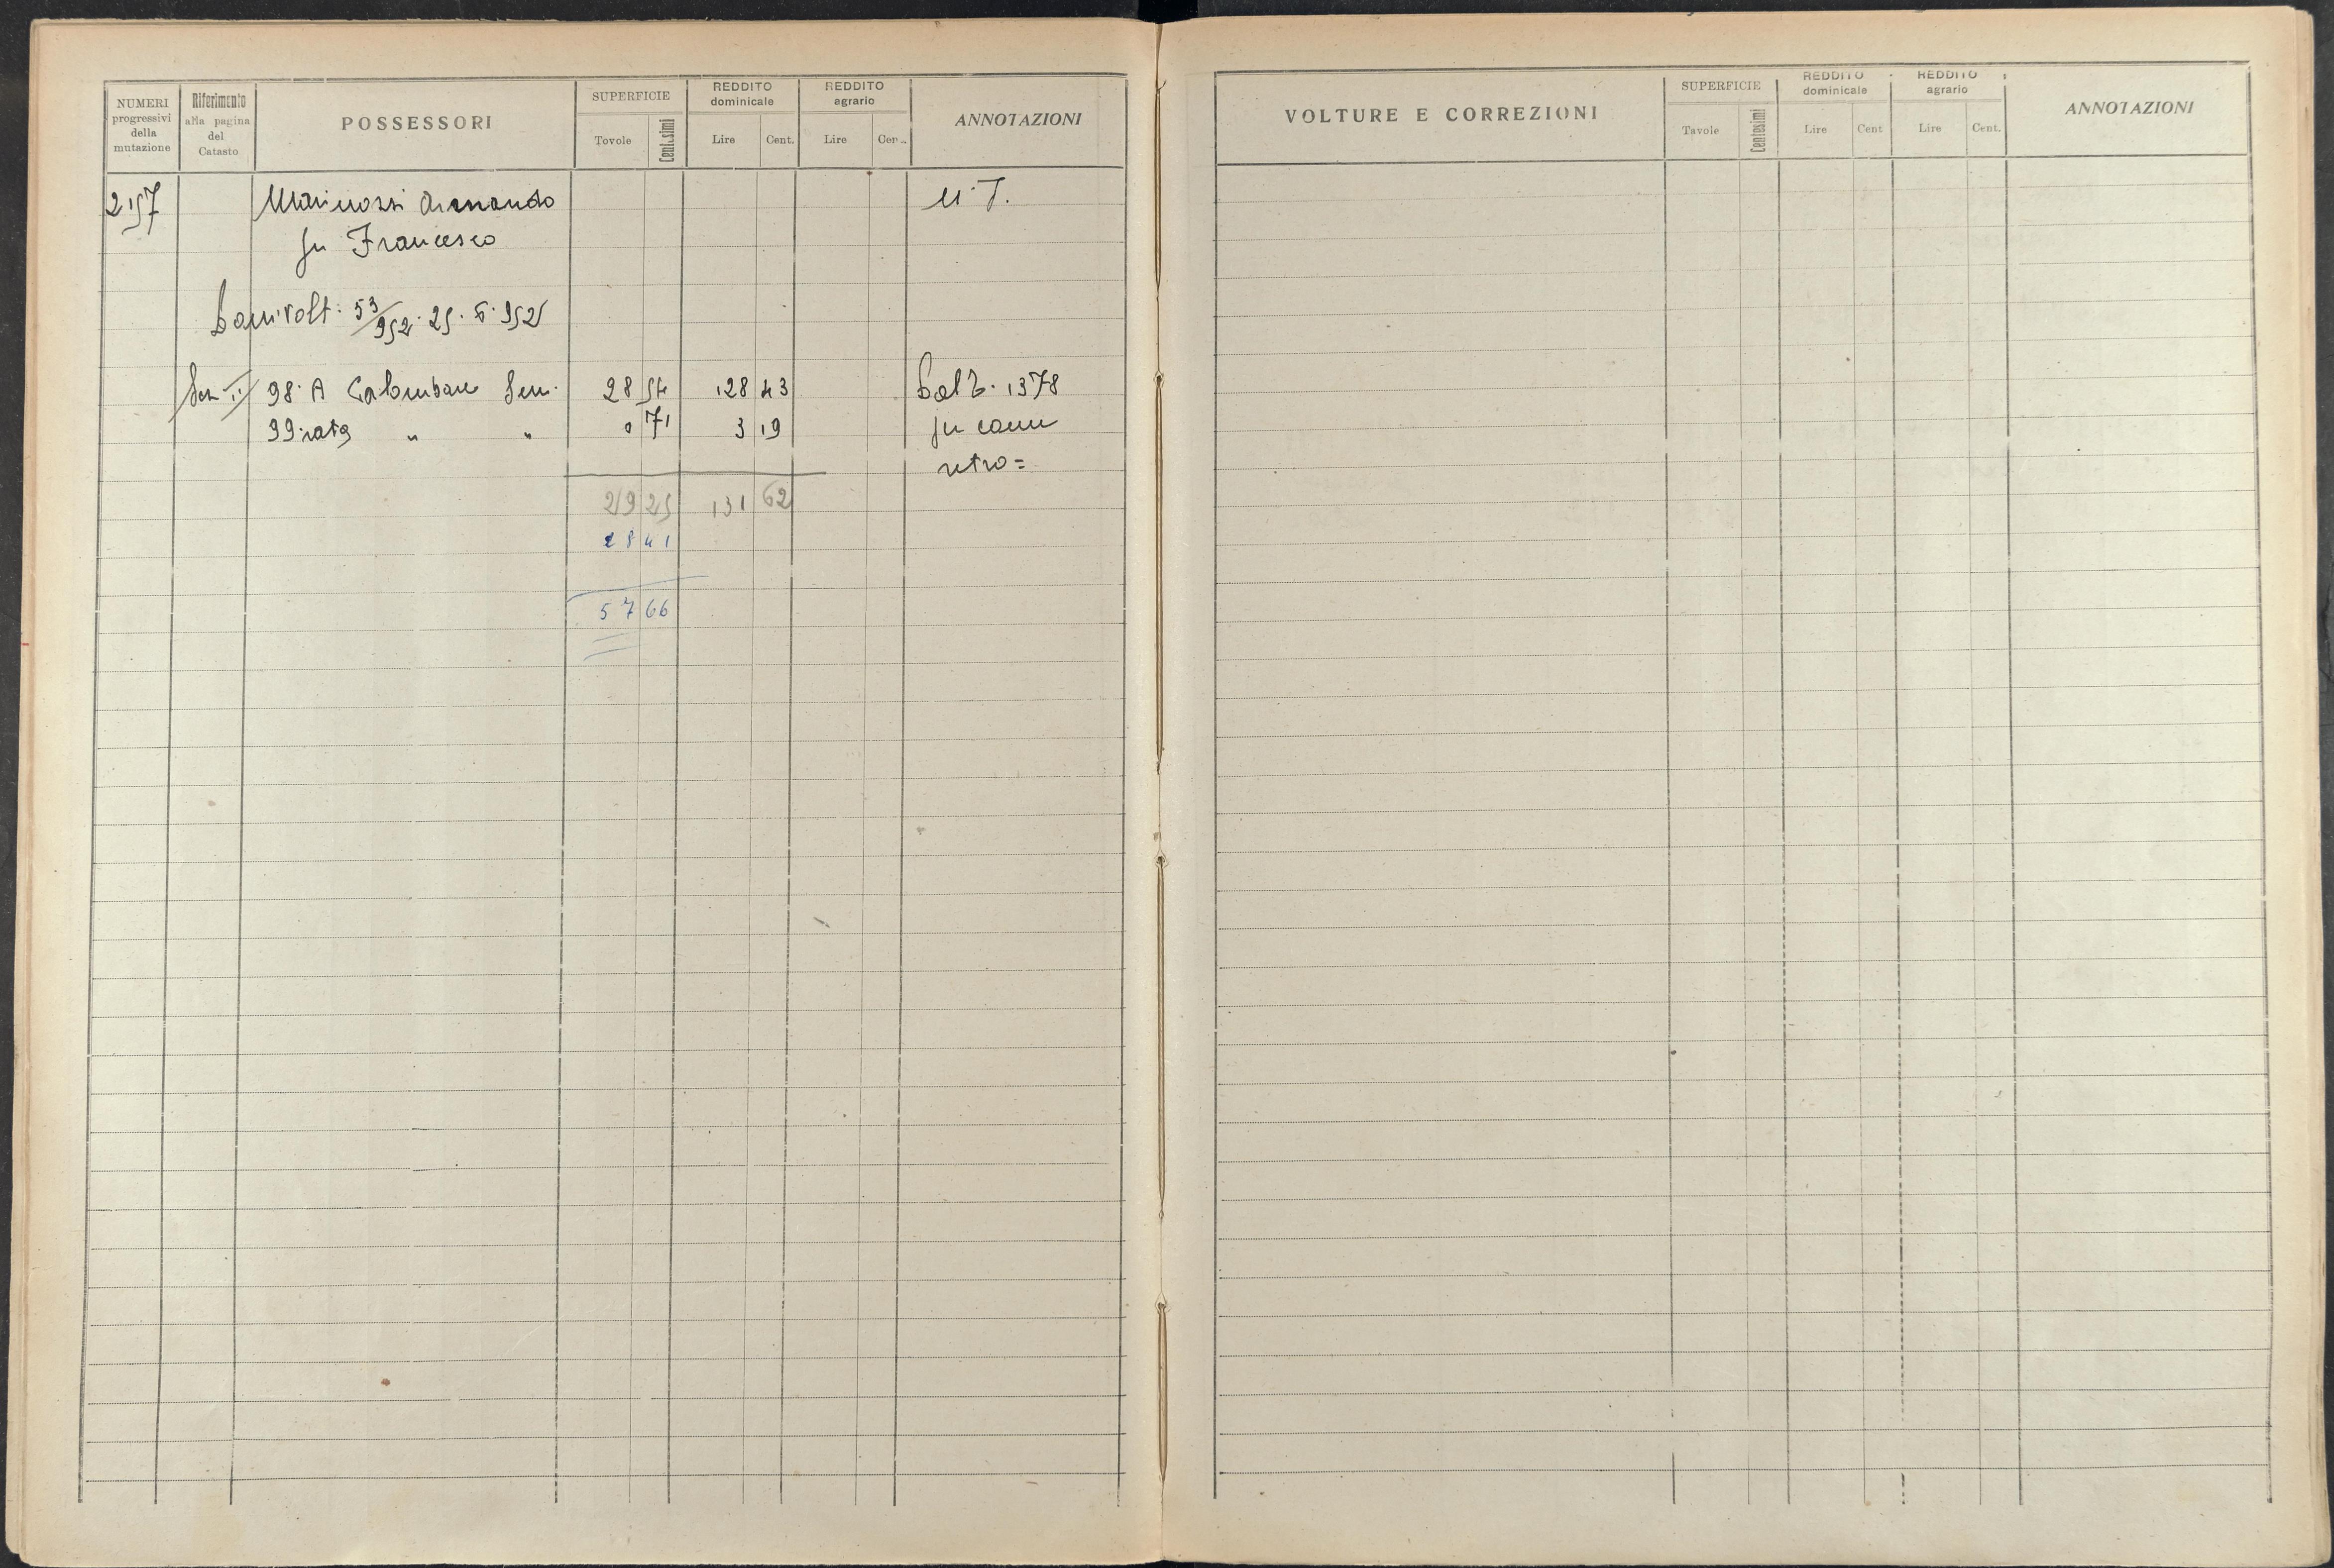 NUMERI progressivi della mutazione
Riferimento alla pagina del Catasto
POSSESSORI
SUPERFICIE
Tovole
Centesimi
REDDITO dominicale
Lire
Cent.
REDDITO agrario
Lire
Cen..
ANNOTAZIONI
257
Armando
M.T.
fu Francesco
53/952. 25. 6. 952
Sez II 98. A Colombare Sem. 28 54 128 43
1378
99 rata " " 0 71 3 19
fu
retro =
29 25 131 62
28 41
57 66
VOLTURE E CORREZIONI
SUPERFICIE
Tavole
Centesimi
REDDITO dominicale
Lire
Cent
REDDITO agrario
Lire
Cent.
ANNOTAZIONI